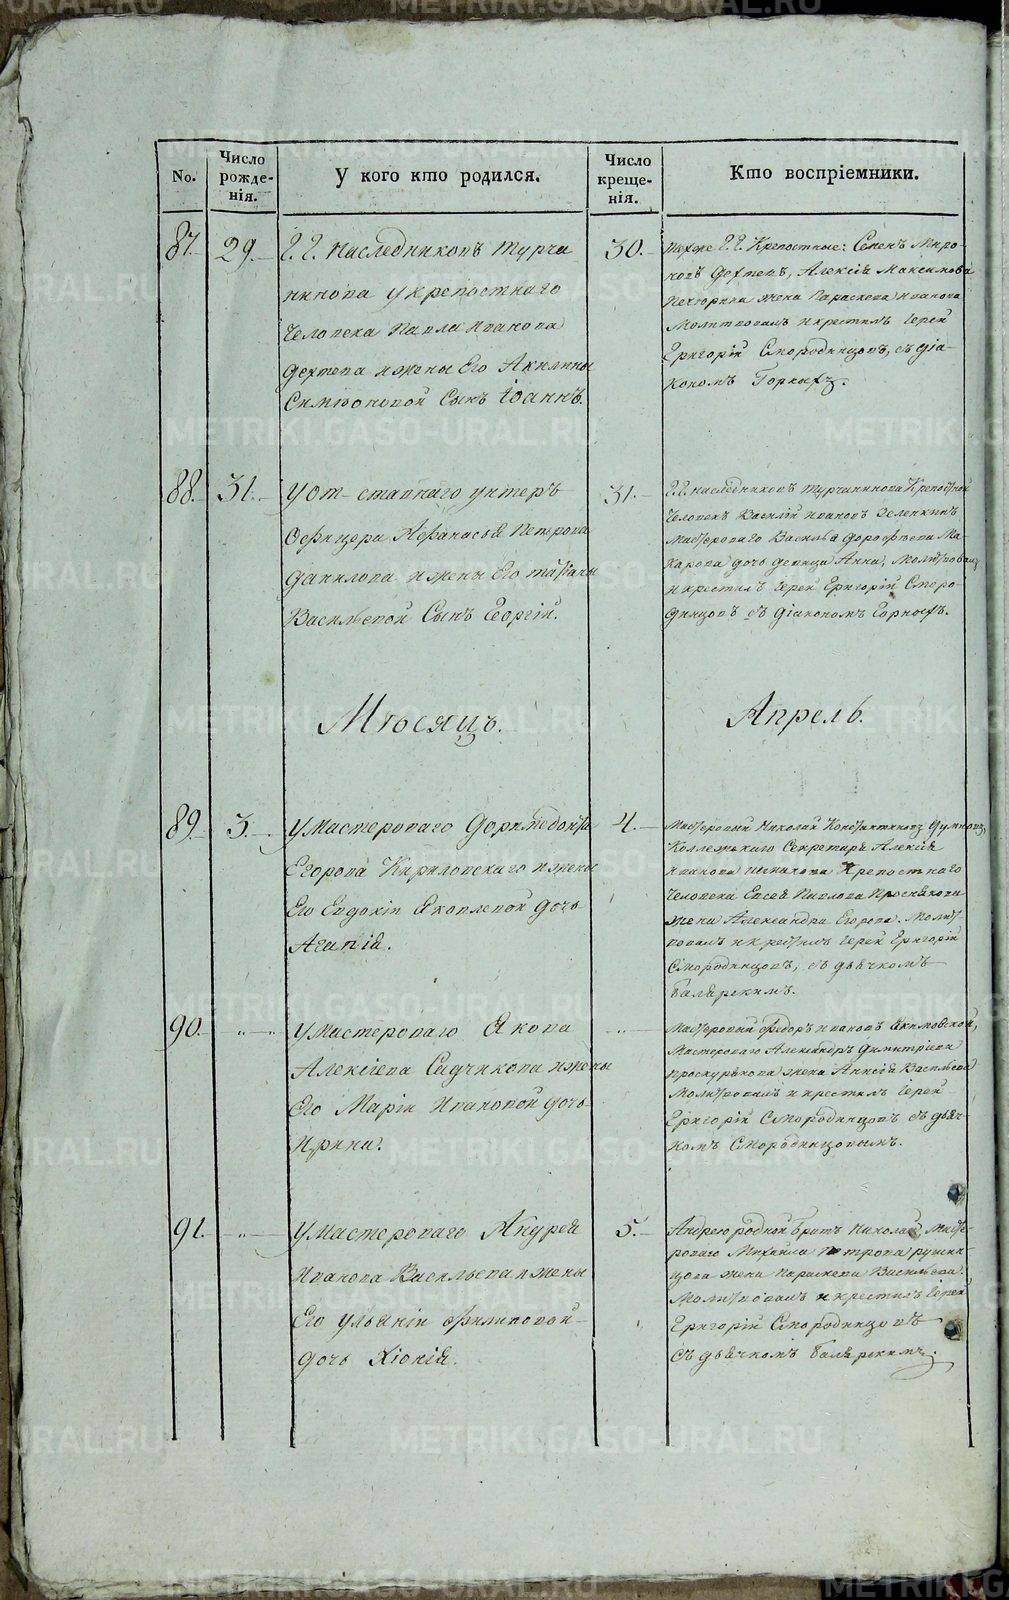 No.
Число рожде-нія.
У кого кто родился.
Число креще-нія.
Кто воспріемники.
87.
29.
Г. Г. Наследниковъ Турча
нинова у крепостнаго
человека Павла Иванова
Дехтева и жены Его Акилины
Симионовой Сынъ Іоаннъ.
30.
Техже Г. Г. Крепостные: Семенъ Миро
новъ Дехтевъ, Алексія Максимова
жена Параскева Иванова
Молитвовалъ и крестилъ Іерей
Григорій Смородинцовъ, съ діа-
кономъ Горныхъ.
88.
31.
У от-ставнаго унтеръ
Офицера Афанасья Петрова
Данилова и жены Его татіаны
Васильевой Сынъ Георгій.
31.
Г. Г. наследниковъ Турчанинова Крепостной
Человекъ Василій Ивановъ Зеленкинъ
мастероваго Василья Дорофеева Ма-
карова дочь девица Анна, Молитвовалъ
и крестилъ Іерей Григорій Сморо
динцовъ съ діакономъ Горныхъ.
Мѣсяцъ.
Апрель.
89.
3.
У Мастероваго Доримедонта
Егорова Кириловскаго и жены
Его Евдокіи Яковлевой дочь
Агапія.
4.
Мастеровый Николай Константиновъ
Коллежскаго Секретаря Алексія
Иванова Крепостнаго
Человека Евсея Павлова
жена Александра Егорова. Молит-
вовалъ и крестилъ Іерей Григорій
Смородинцовъ, съ дьячкомъ
90.
" "
У Мастероваго Якова
Алексіева Садчикова и жены
Его Маріи Ивановой дочь
Ирина.
"
Мастеровый Федоръ Ивановъ Якимовской,
Мастероваго Александръ Димитріева
Проскурякова жена Анисія Васильева
Молитвовалъ и крестилъ Іерей
Григорій Смородинцовъ съ дьяч-
комъ Смородинцовымъ.
91.
"
У Мастероваго Андрея
Иванова Васильева и жены
Его Ульяніи Филиповой
дочь Хіонія.
5.
Андрею родной братъ Николай, масте-
роваго Михайла Петрова рушни-
цова жена Параскева Васильева.
Молитвовалъ и крестилъ Іерей
Григорій Смородинцовъ
съ дьячкомъ
METRIKI.GASO-URAL.RU